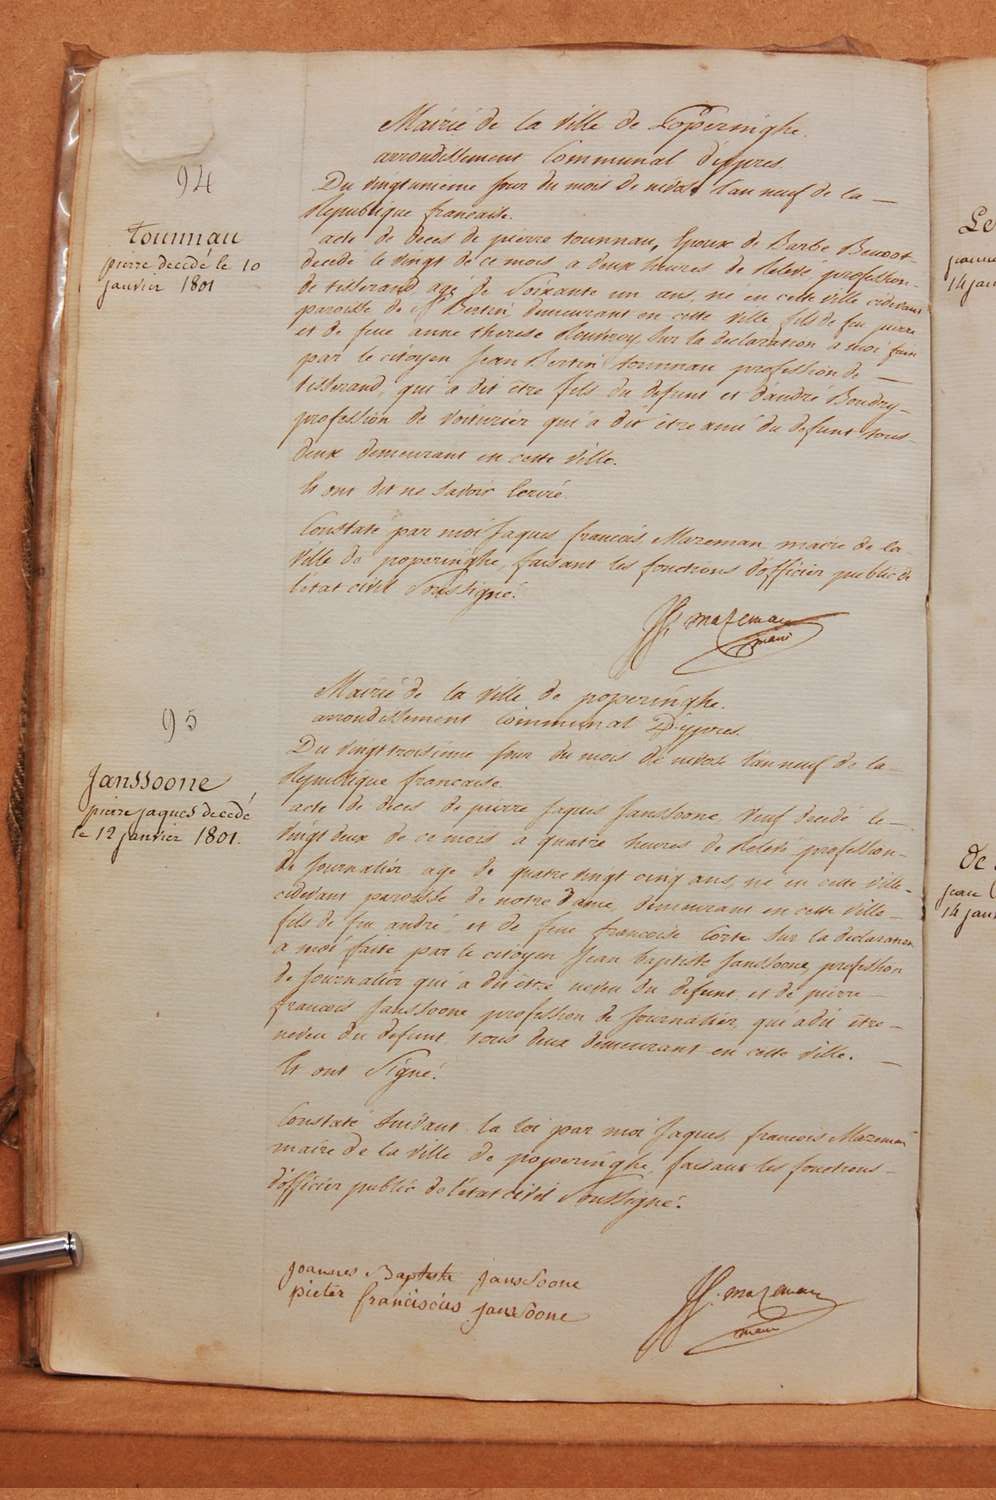 Mairié de la ville de Poperinghe.
arrondissement Communal d'ypres
94
Du vingtunieme jour du mois de nivôse l'an neuf de la
Republique francaise.
tounnau
pierre decedé le 10
janvier 1801
acte de deces de pierre tounnau, Epoux de Barbe
decede le vingt de ce mois a deux heures de Relevé profession
de tisserand age de Soixante un ans, né en cette ville cidevant
paroisse de St Bertin, demeurant en cette ville fils de feu pierre
et de feue anne therese sur la declaration a moi faite
par le citoyen Jean Bertin tounnau profession de
tisserand, qui a dit être fils du defunt et d'andré Boudry
profession de voiturier qui a dit être ami du defunt tous
deux demeurant en cette ville.
Et ont dit ne savoir
Constaté par moi Jaques francois Mazeman maire de la
ville de poperinghe, faisant les fonctions d'officier public de
l'etat civil Soussigné.
JF. mazeman
maire
Mairié de la ville de poperinghe.
arrondissement Communal D'ypres.
95
Du vingt troisieme jour du mois de nivôse l'an neuf de la
Republique francaise
Janssoone
pierre jaques decedé
le 12 janvier 1801.
acte de deces de pierre jaques Janssoone, veuf decedé le
vingt deux de ce mois a quatre heures de Relevé profession
de journalier age de quatre vingt cinq ans, né en cette ville
cidevant paroisse de notre Dame, demeurant en cette ville
fils de feu andré, et de feue francoise Corte sur la declaration
a moi faite par le citoyen Jean baptiste Janssoone, profession
de journalier qui a dit être neveu du defunt et de pierre
francois Janssoone profession de journalier, qui a dit être
neveu du defunt, tous deux demeurant en cette ville.
Et ont Signé.
Constaté suivant la loi par moi Jaques francois Mazeman
maire de la ville de poperinghe, faisant les fonctions
d'officier public de l'etat civil Soussigné.
joannes Baptiste janssoone
pieter franciscus janssoone
JF. mazeman
maire
Le
14 jan
De
jean
14 jan